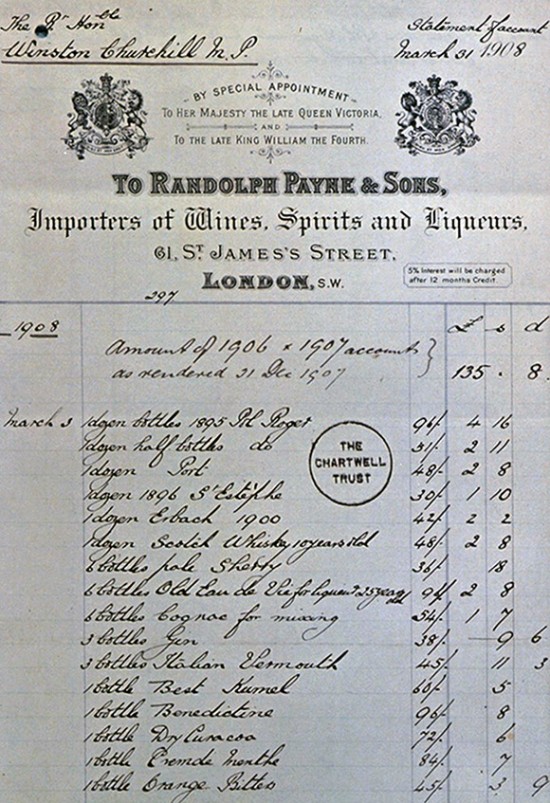 The Rt Honble
Statement of account
Winston Churchill M.P.
March 31 1908
BY SPECIAL APPOINTMENT
TO HER MAJESTY THE LATE QUEEN VICTORIA,
AND
TO THE LATE KING WILLIAM THE FOURTH.
TO RANDOLPH PAYNE & SONS,
Importers of Wines, Spirits and Liqueurs,
61, ST JAMES'S STREET,
LONDON, S.W.
5% Interest will be charged
after 12 months Credit.
297
1908 £ s d
Amount of 1906 & 1907 account
as rendered 31 Dec 1907 135 . 8
March 3 1 dozen bottles 1895 Pol Roger 96/- 4 16
1 dozen half bottles do 51/- 2 11
1 dozen Port 48/- 2 8
1 dozen 1896 St Estèphe 30/- 1 10
1 dozen Erbach 1900 42/- 2 2
1 dozen Scotch Whisky 10 years old 48/- 2 8
6 bottles pale Sherry 36/- 18
6 bottles Old Eau de Vie for liqueur 25 years old 96/- 2 8
6 bottles Cognac for mixing 54/- 1 7
3 bottles Gin 38/- 9 6
3 bottles Italian Vermouth 45/- 11 3
1 bottle Best Kumel 60/- 5
1 bottle Benedictine 96/- 8
1 bottle Dry Curacoa 72/- 6
1 bottle Creme de Menthe 84/- 7
1 bottle Orange Bitters 45/- 3 9
THE
CHARTWELL
TRUST